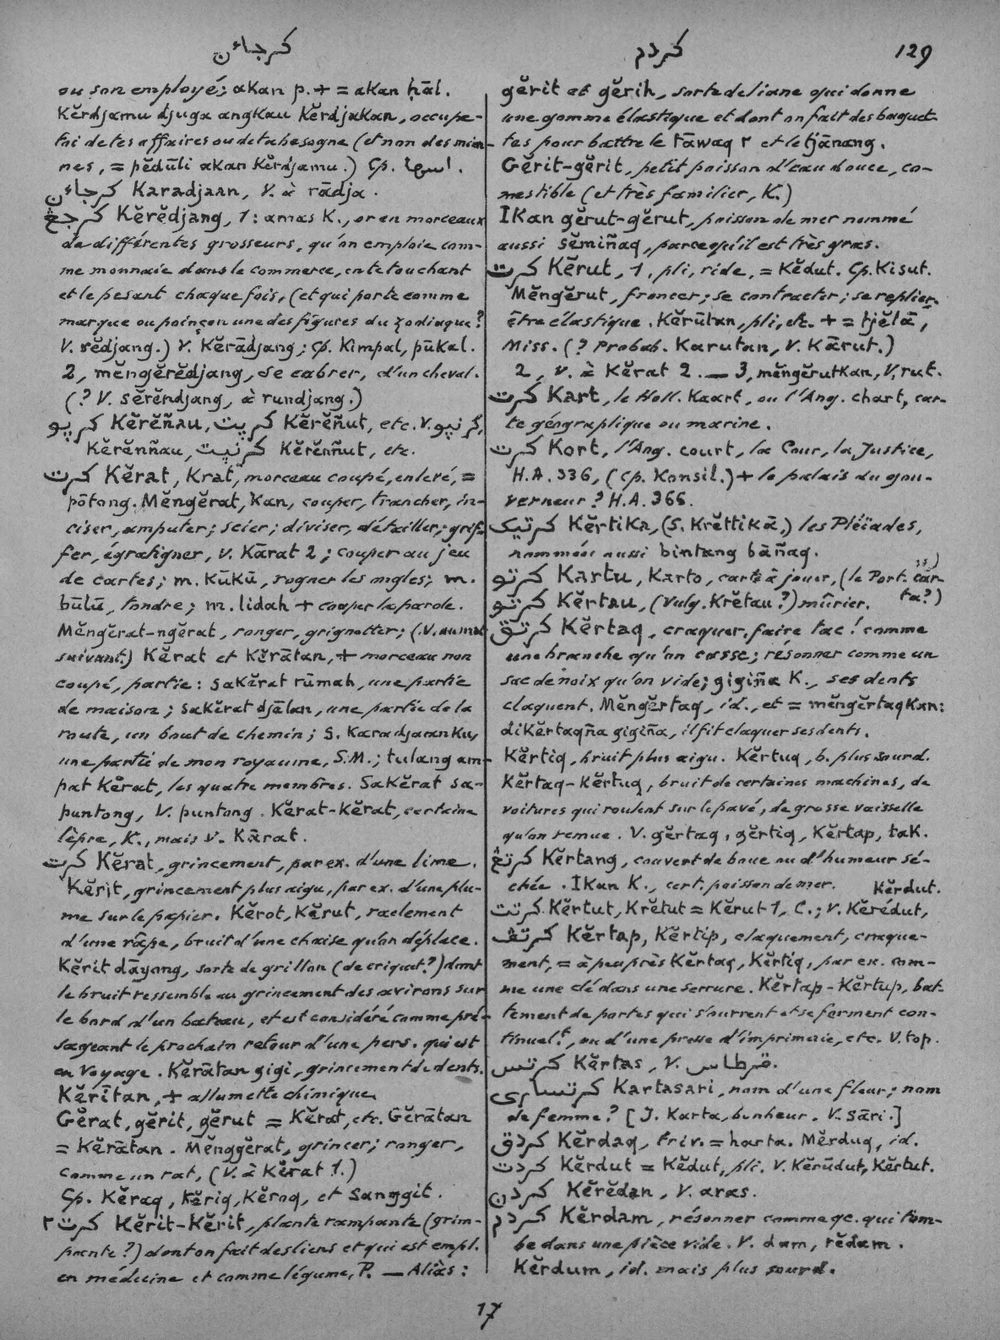 كرجاءن
كردم
129
ou son employé; akan p. + = akan ḥāl.
Kĕrdjamu djuga angkau Kĕrdjakan, occupe-
toi de tes affaires ou de ta besogne (et non des mien-
nes, = pĕdūli akan Kĕrdjamu.) Cp.
كرجاءن Karadjaan, V. à rādja.
كرجڠ Kĕrĕdjang, 1: amas K., or en morceaux
de différentes grosseurs, qu'on emploie com-
me monnaie dans le commerce, en le touchant
et le pesant chaque fois, (et qui porte comme
marque ou poinçon une des figures du zodiaque?
V. rĕdjang.) V. Kĕrādjang; Cp. Kimpal, pūkal.
2, mĕngĕrĕdjang, se cabrer, d'un cheval.
(? V. sĕrĕndjang, à rundjang.)
Kĕrĕñau, Kĕrĕñut, etc. V.
Kĕrĕnñau, Kĕrĕnñut, etc.
كرت Kĕrat, Krat, morceau coupé, enlevé, =
pōtong. Mĕngĕrat, Kan, couper, trancher, in-
ciser, amputer; scier; diviser, détailler; grif-
fer, égratigner, V. Kārat 2; couper au jeu
de cartes; m. Kūkū, rogner les ongles; m.
būlū, tondre; m. lidah + couper la parole.
Mĕngĕrat-ngĕrat, ronger, grignotter; (V. au mot
suivant.) Kĕrat et Kĕrātan, + morceau non
coupé, partie: sakĕrat rūmah, une partie
de maison; sakĕrat djālan, une partie de la
route, un bout de chemin; S. Karadjaanku,
une partie de mon royaume, S.M.; tulang am-
pat Kĕrat, les quatre membres. Sakĕrat sa-
puntong, V. puntong. Kĕrat-Kĕrat, certaine
lèpre, K., mais V. Kārat.
كرت Kĕrat, grincement, par ex. d'une lime.
Kĕrit, grincement plus aigu, par ex. d'une plu-
me sur le papier. Kĕrot, Kĕrut, raclement
d'une râpe, bruit d'une chaise qu'on déplace.
Kĕrit dāyang, sorte de grillon (de criquet?) dont
le bruit ressemble au grincement des avirons sur
le bord d'un bateau, et est considéré comme pré-
sageant le prochain retour d'une pers. qui est
en voyage. Kĕrātan gigi, grincement de dents.
Kĕrītan, + allumette chimique
Gĕrat, gĕrit, gĕrut = Kĕrat, etc. Gĕrātan
= Kĕrātan. Mĕnggĕrat, grincer; ronger,
comme un rat, (V. à Kĕrat 1.)
Cp. Kĕraq, Kĕriq, Kĕroq, et Sanggit.
كرت٢ Kĕrit-Kĕrit, plante rampante (grim-
pante?) dont on fait des liens et qui est empl.
en médecine et comme légume, P. — Aliàs:
gĕrit et gĕrih, sorte de liane qui donne
une gomme élastique et dont on fait des baguet-
tes pour battre le tāwaq r et le tjānang.
Gĕrit-gĕrit, petit poisson d'eau douce, co-
mestible (et très familier, K.)
Ikan gĕrut-gĕrut, poisson de mer nommé
aussi sĕmiñaq, parce qu'il est très gras.
كرت Kĕrut, 1, pli, ride, = Kĕdut. Cp. Kisut.
Mĕngĕrut, froncer; se contracter; se replier,
être élastique. Kĕrūtan, pli, etc. + = tjĕlā,
Miss. (? Probab. Karutan, V. Kārut.)
2, V. à Kĕrat 2. — 3, mĕngĕrutkan, V. rut.
كرت Kart, le Holl. Kaart, ou l'Ang. chart, car-
te géographique ou marine.
كرت Kort, l'Ang. court, la Cour, la Justice,
H.A. 336, (Cp. Konsil.) + le palais du gou-
verneur? H.A. 366.
كرتيک Kĕrtika, (S. Krĕttikā,) les Pléiades,
nommées aussi bintang bāñaq.
كرتو Kartu, Karto, carte à jouer, (le Port. car-
ta?)
كرتو Kĕrtau, (Vulg. Krĕtau?) mûrier.
كرتق Kĕrtaq, craquer, faire tac! comme
une branche qu'on casse; résonner comme un
sac de noix qu'on vide; gigiña K., ses dents
claquent. Mĕngĕrtaq, id., et = mĕngĕrtaqkan:
diKĕrtaqña gigiña, il fit claquer ses dents.
Kĕrtiq, bruit plus aigu. Kĕrtuq, b. plus sourd.
Kĕrtaq-Kĕrtuq, bruit de certaines machines, de
voitures qui roulent sur le pavé, de grosse vaisselle
qu'on remue. V. gĕrtaq, gĕrtiq, Kĕrtap, tak.
كرتڠ Kĕrtang, couvert de boue ou d'humeur sé-
chée. Ikan K., cert. poisson de mer.
Kĕrdut.
كرتت Kĕrtut, Krĕtut = Kĕrut 1, C.; V. Kĕrĕdut,
كرتڤ Kĕrtap, Kĕrtip, claquement, craque-
ment, = à peu près Kĕrtaq, Kĕrtiq, par ex. com-
me une clé dans une serrure. Kĕrtap-Kĕrtup, bat-
tement de portes qui s'ouvrent et se ferment con-
tinuelt, ou d'une presse d'imprimerie, etc. V. top.
كرتس Kĕrtas, V. قرطاس.
كرتساري Kartasari, nom d'une fleur; nom
de femme? [J. Karta, bonheur. V. Sāri.]
كردق Kĕrdaq, triv. = harta. Mĕrduq, id.
كردت Kĕrdut = Kĕdut, pli. V. Kĕrūdut, Kĕrtut.
كردن Kĕrĕdan, V. aras.
كردم Kĕrdam, résonner comme qc. qui tom-
be dans une pièce vide. V. dam, rĕdam.
Kĕrdum, id. mais plus sourd.
17